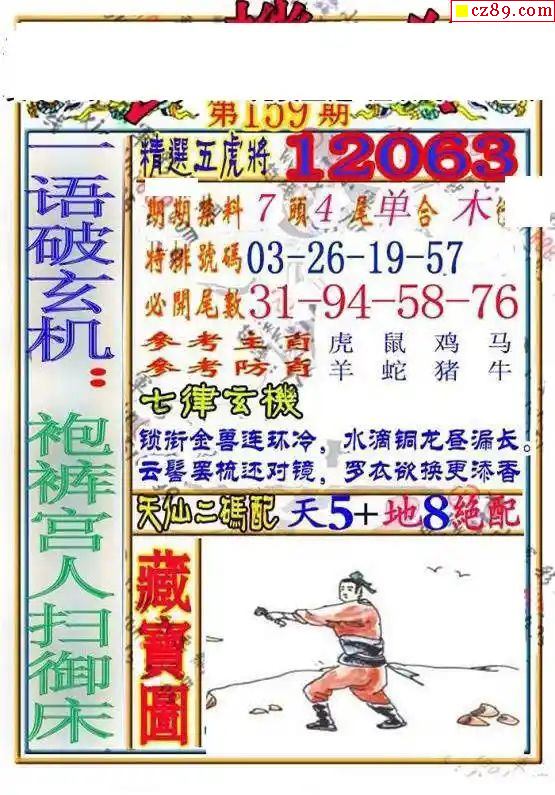 cz89.com
第159期
一语破玄机：
袍裤宫人扫御床
精選五虎將 12063
期期禁料 7頭4尾单合木
特排號碼 03-26-19-57
必開尾數 31-94-58-76
參考主肖 虎 鼠 鸡 马
參考防肖 羊 蛇 猪 牛
七律玄機
锁衔金兽连环冷，水滴铜龙昼漏长。
云髻罢梳还对镜，罗衣欲换更添香
天仙二碼配 天5+地8絕配
藏寶圖